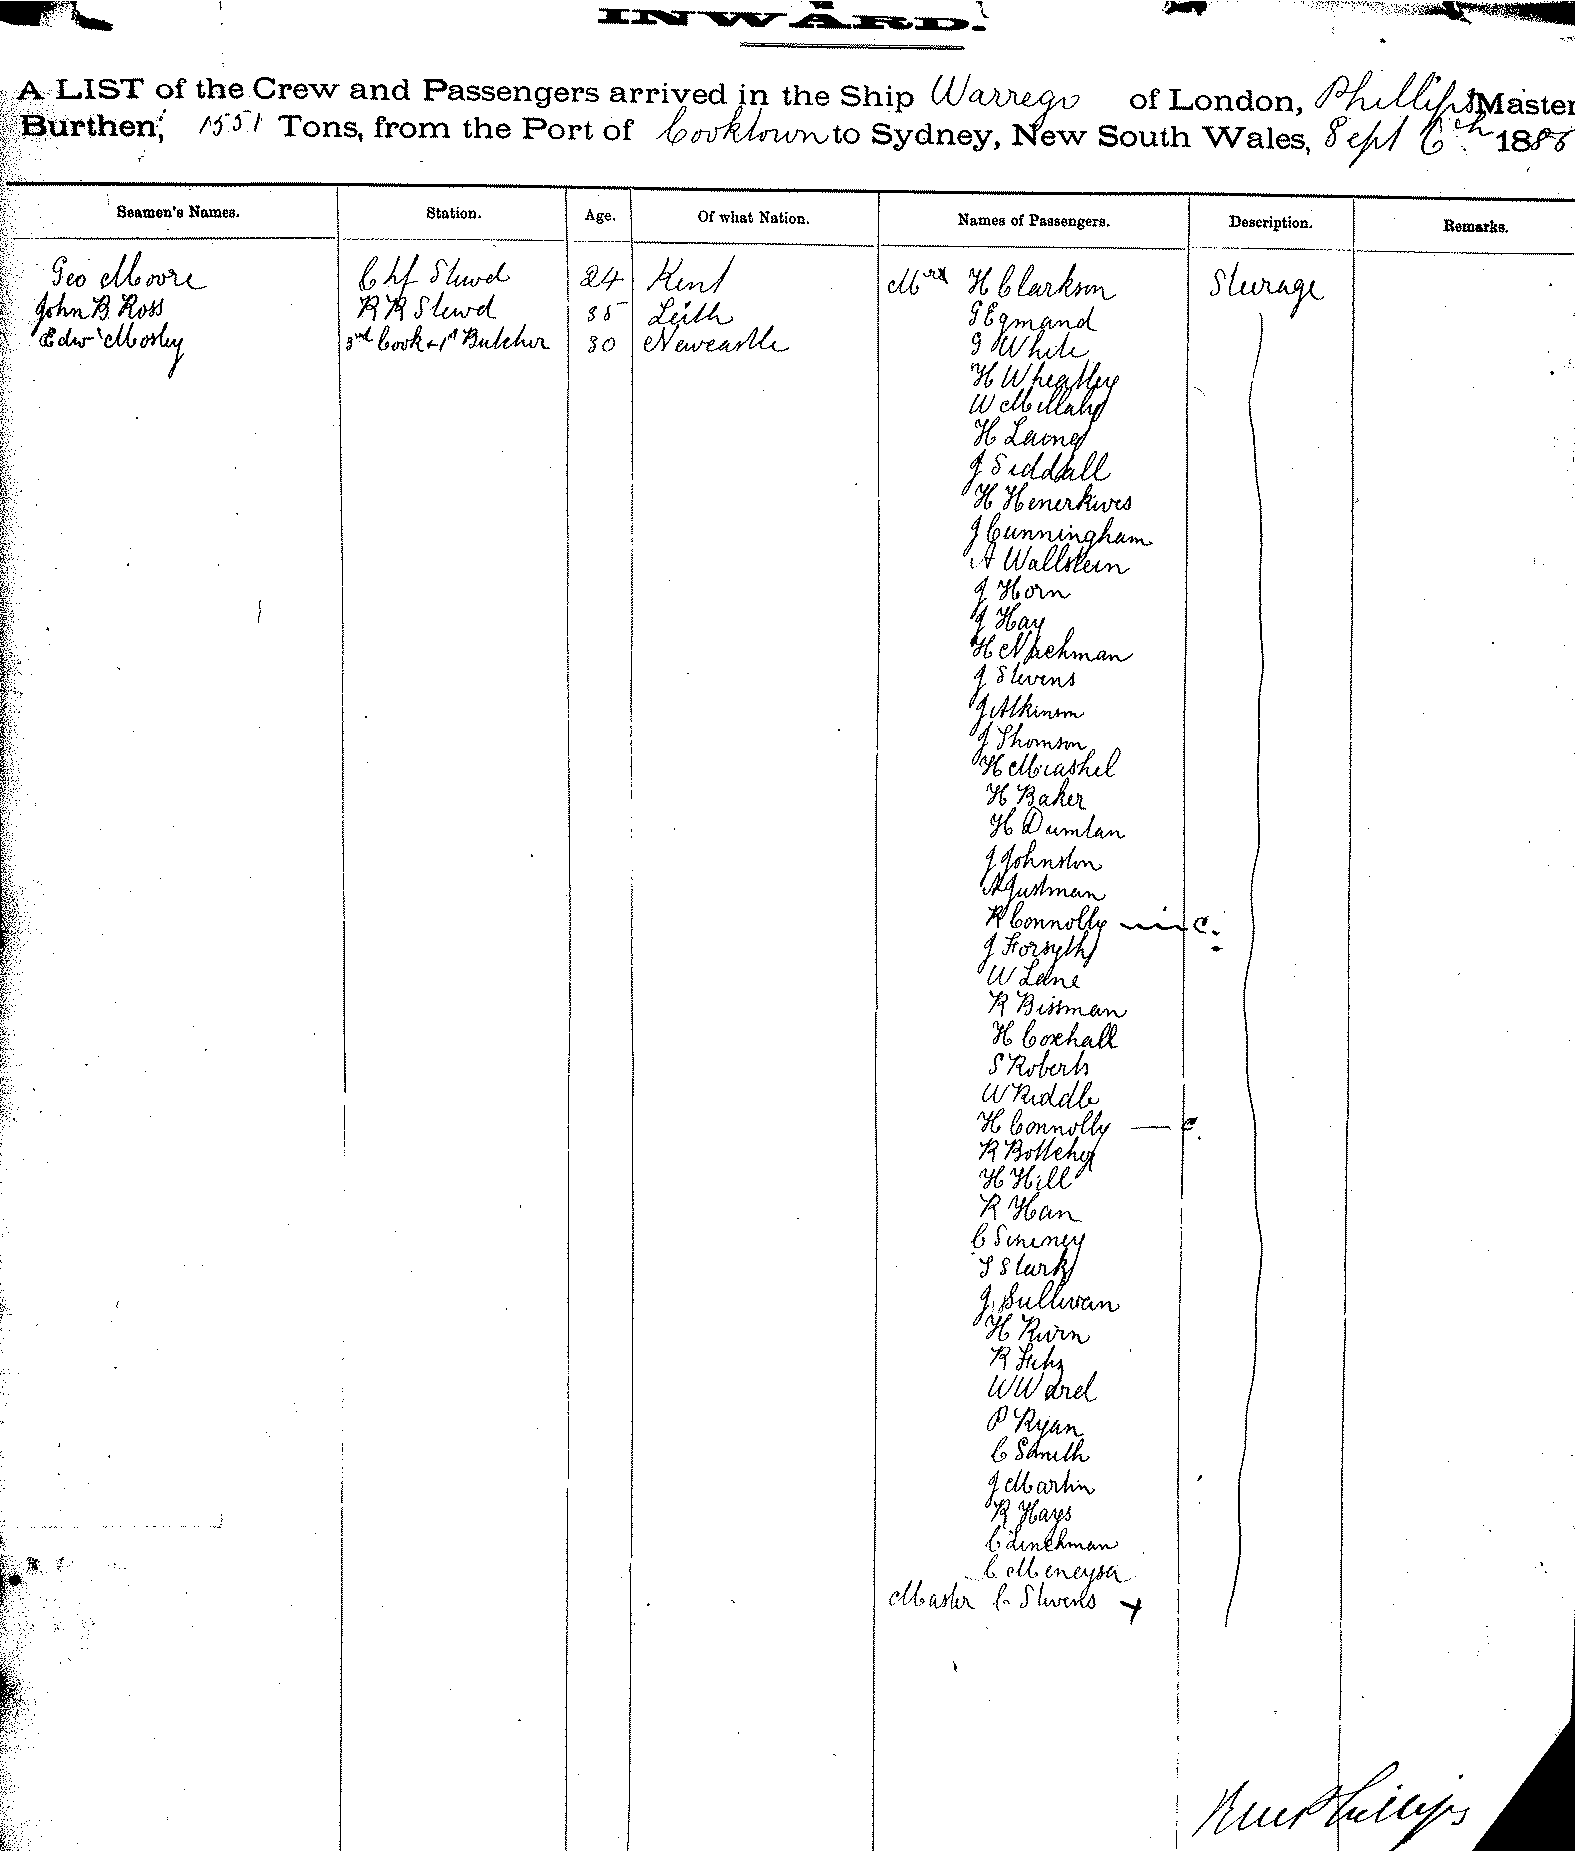 INWARD.
A LIST of the Crew and Passengers arrived in the Ship Warrego of London, Phillips Master
Burthen, 1551 Tons, from the Port of Cooktown to Sydney, New South Wales, Sept 6th 1886
Seamen's Names. Station. Age. Of what Nation. Names of Passengers. Description. Remarks.
Geo Moore Chf Stewd 24 Kent Mrs H Clarkson Steerage
John B. Ross RR Stewd 35 Leith G Egmand
Edwd Mosley 3rd Cook + 1st Butcher 30 Newcastle G White
H Wheatley
W Millard
H Laong
J Siddall
H Henerkives
J Cunningham
A Wallstein
J Horn
J Hay
H Nachman
J Stevens
J Atkinson
J Thomson
H Meashel
H Baker
H Dumlan
J Johnston
A Justman
R Connolly c.
J Forsyth
W Lane
R Bissman
H Coxhall
S Roberts
W Riddle
H Connolly — c.
R Bottcher
H Hill
R Han
C
S Stark
J Sullivan
H
R
W Ward
P Ryan
C Smith
J Martin
R Hays
C Linchman
C Meneysa
Master C Stevens x
Phillips